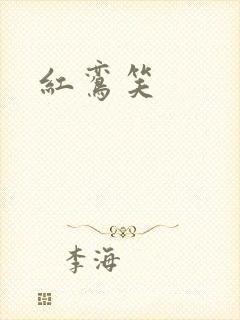 红鸾笑
李海